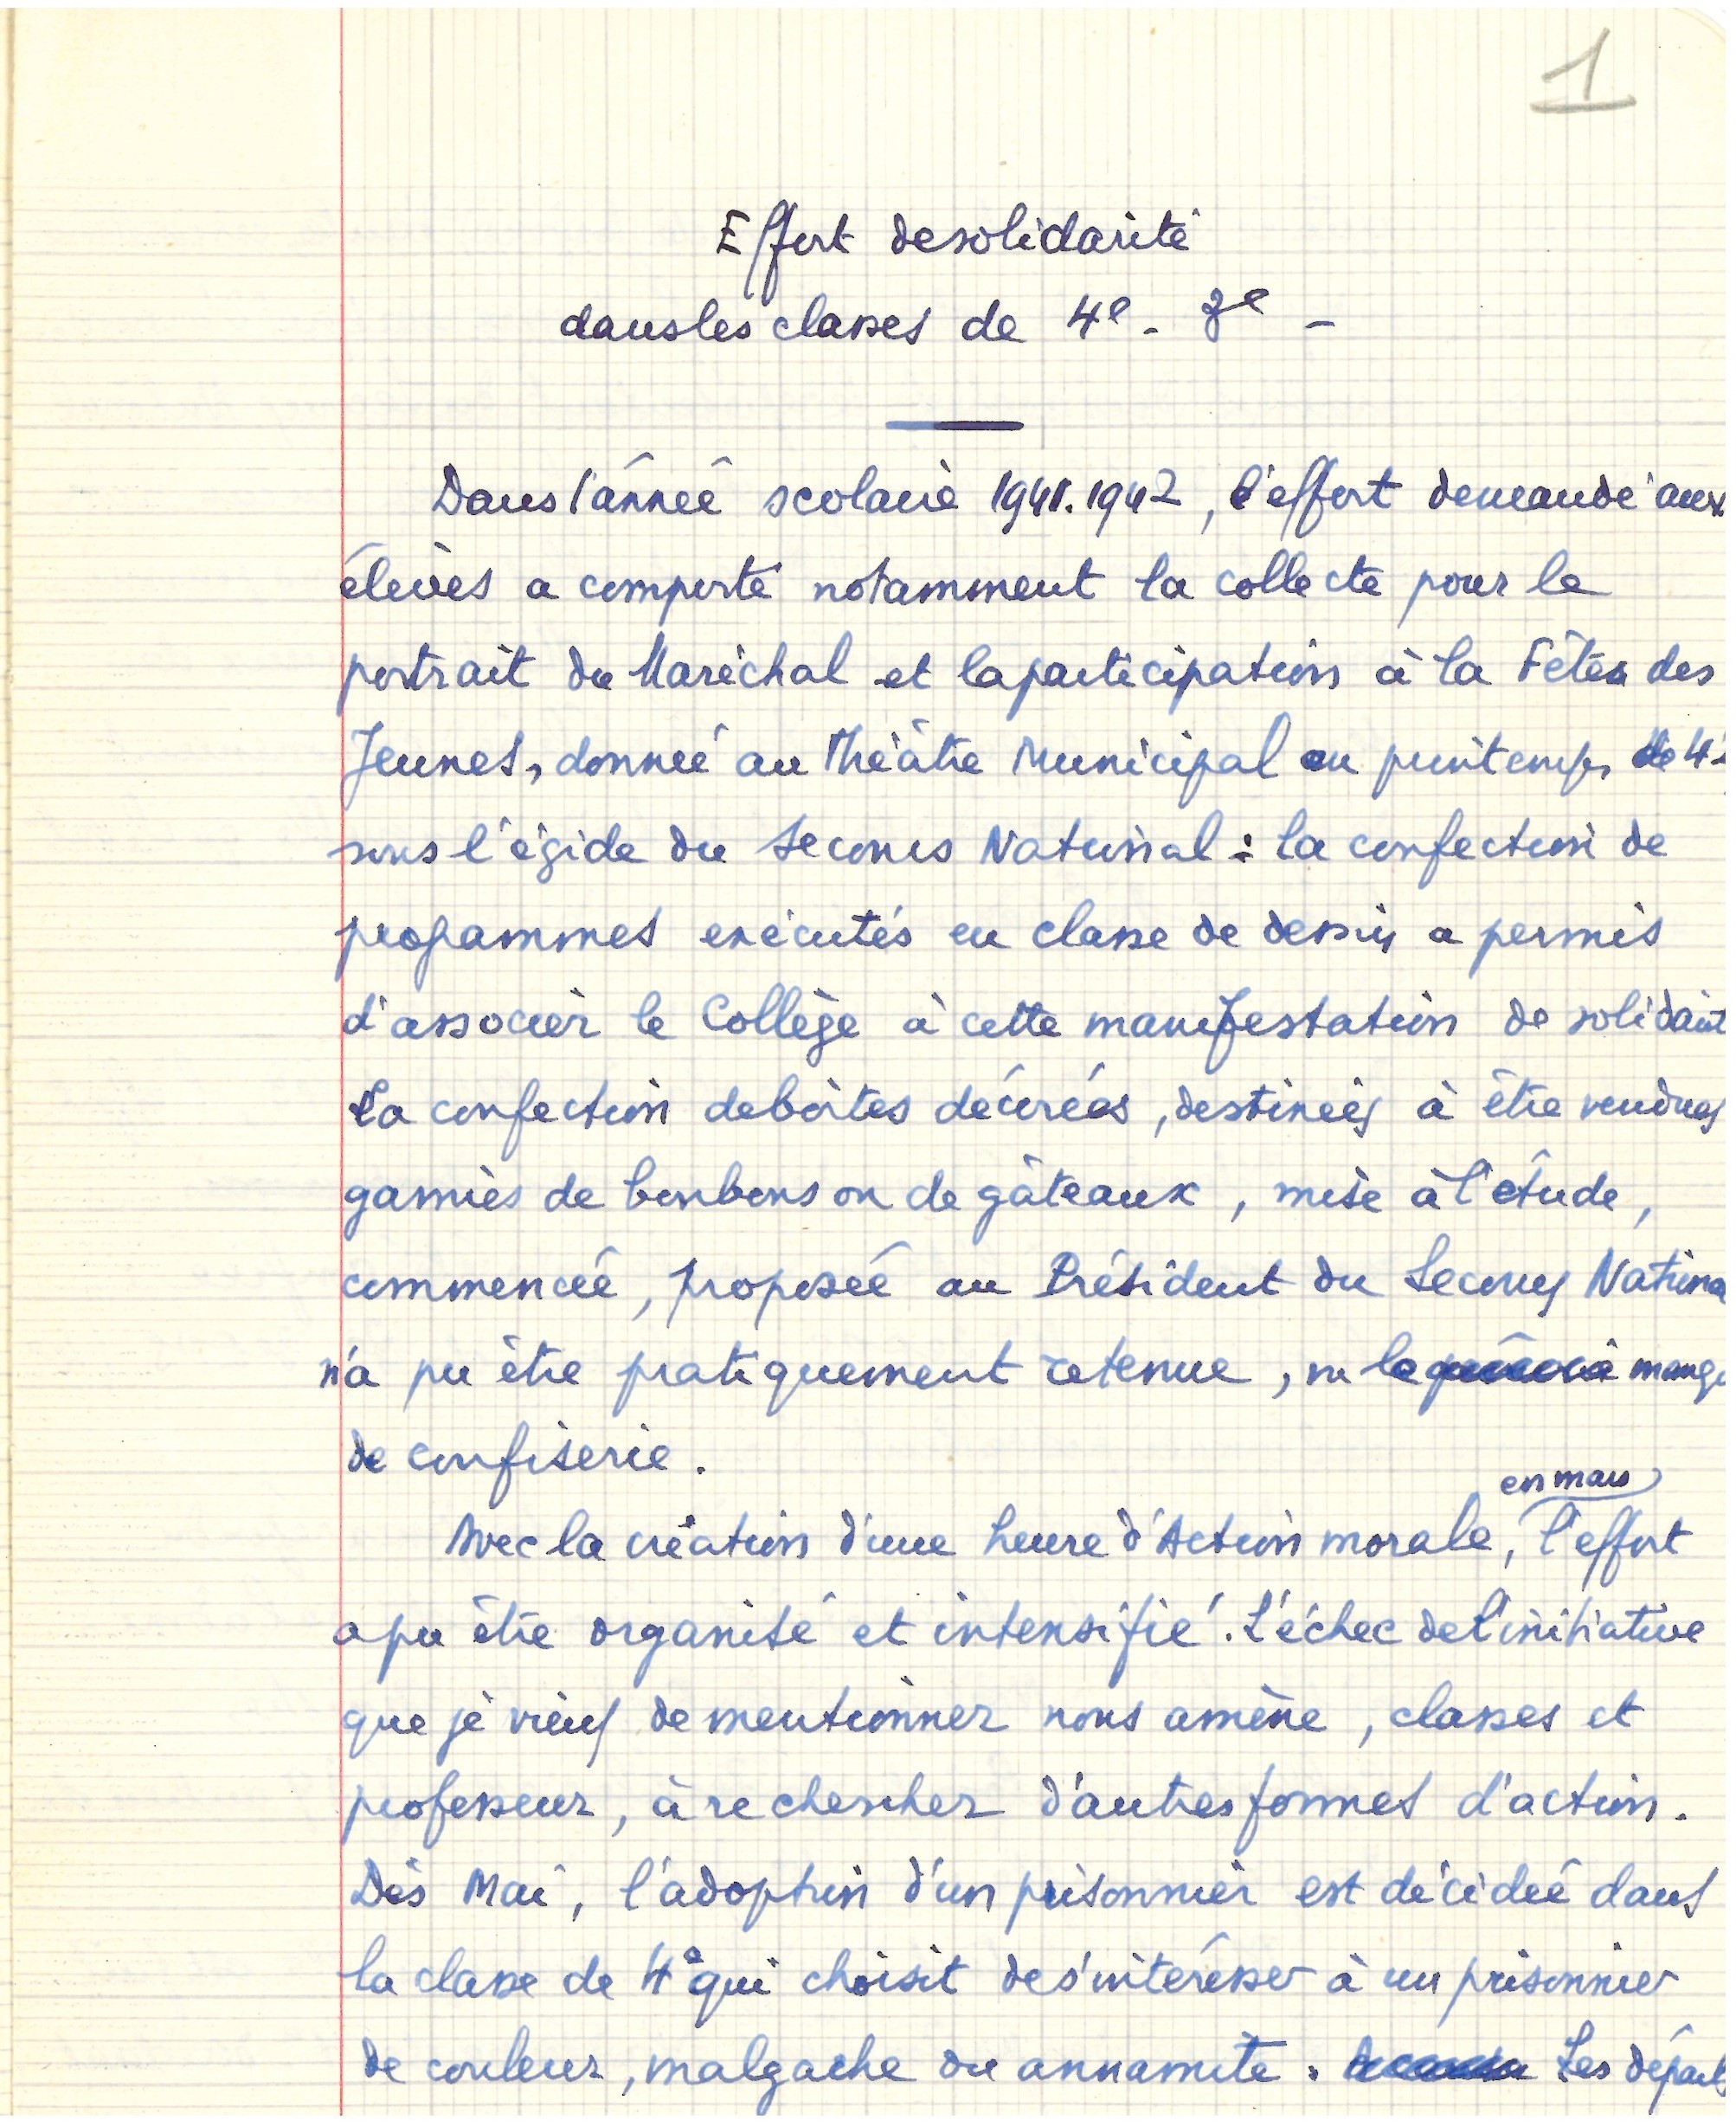 1
Effort de solidarité
dans les classes de 4e - 3e -
Dans l'année scolaire 1941.1942, l'effort demandé aux
élèves a comporté notamment la collecte pour le
portrait du Maréchal et la participation à la Fête des
Jeunes, donnée au Théâtre Municipal au printemps de
sous l'égide du Secours National : la confection de
programmes exécutés en classe de dessin a permis
d'associer le Collège à cette manifestation de solidarit
La confection de boîtes décorées, destinées à être vendues
garnies de bonbons ou de gâteaux, mise à l'étude,
commencée, proposée au Président du Secours Nationa
n'a pu être pratiquement retenue, vu le manq
de confiserie.
en mars
Avec la création d'une heure d'Action morale, l'effort
a pu être organisé et intensifié. L'échec de l'initiative
que je viens de mentionner nous amène, classes et
professeur, à rechercher d'autres formes d'action.
Dès Mai, l'adoption d'un prisonnier est décidée dans
la classe de 4e qui choisit de s'intéresser à un prisonnier
de couleur, malgache ou annamite. Les départ